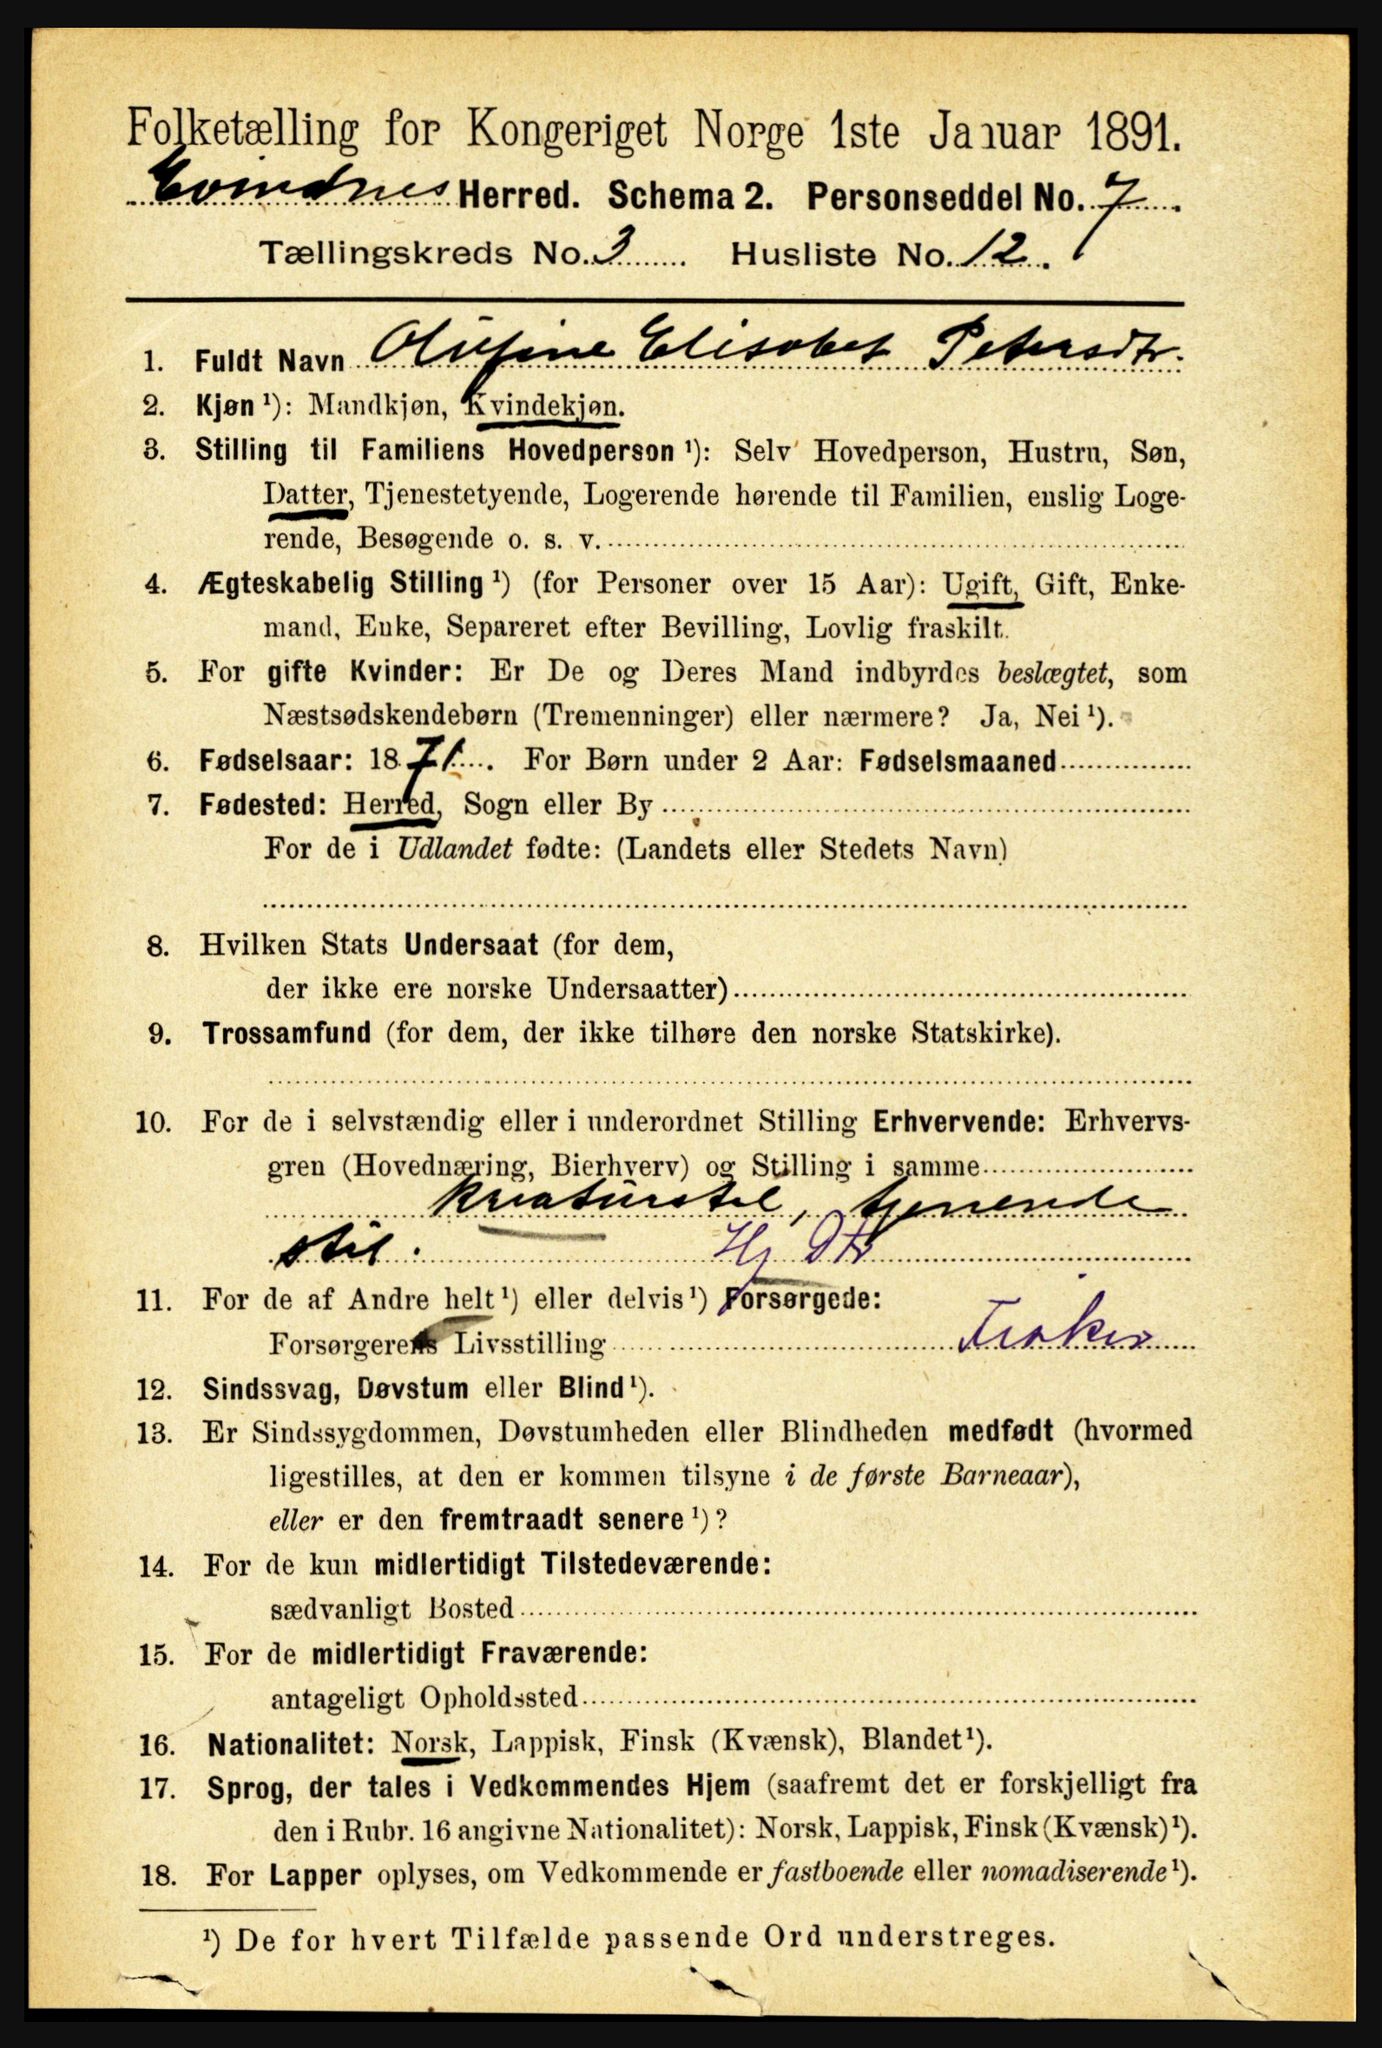 Folketælling for Kongeriget Norge 1ste Januar 1891.
Evindnes Herred. Schema 2. Personseddel No. 7.
Tællingskreds No. 3 Husliste No. 12.
1. Fuldt Navn Olufine Elisabet Petersdtr.
2. Kjøn ¹): Mandkjøn, Kvindekjøn.
3. Stilling til Familiens Hovedperson ¹): Selv Hovedperson, Hustru, Søn,
Datter, Tjenestetyende, Logerende hørende til Familien, enslig Loge-
rende, Besøgende o. s. v.
4. Ægteskabelig Stilling ¹) (for Personer over 15 Aar): Ugift, Gift, Enke-
mand, Enke, Separeret efter Bevilling, Lovlig fraskilt.
5. For gifte Kvinder: Er De og Deres Mand indbyrdes beslægtet, som
Næstsødskendebørn (Tremenninger) eller nærmere? Ja, Nei ¹).
6. Fødselsaar: 1871. For Børn under 2 Aar: Fødselsmaaned
7. Fødested: Herred, Sogn eller By
For de i Udlandet fødte: (Landets eller Stedets Navn)
8. Hvilken Stats Undersaat (for dem,
der ikke ere norske Undersaatter)
9. Trossamfund (for dem, der ikke tilhøre den norske Statskirke).
10. For de i selvstændig eller i underordnet Stilling Erhvervende: Erhvervs-
gren (Hovednæring, Bierhverv) og Stilling i samme
kreaturstel, tjenende
stil. Hj Dtr
11. For de af Andre helt ¹) eller delvis ¹) Forsørgede:
Forsørgerens Livsstilling Fisker
12. Sindssvag, Døvstum eller Blind ¹).
13. Er Sindssygdommen, Døvstumheden eller Blindheden medfødt (hvormed
ligestilles, at den er kommen tilsyne i de første Barneaar),
eller er den fremtraadt senere ¹)?
14. For de kun midlertidigt Tilstedeværende:
sædvanligt Bosted
15. For de midlertidigt Fraværende:
antageligt Opholdssted
16. Nationalitet: Norsk, Lappisk, Finsk (Kvænsk), Blandet ¹).
17. Sprog, der tales i Vedkommendes Hjem (saafremt det er forskjelligt fra
den i Rubr. 16 angivne Nationalitet): Norsk, Lappisk, Finsk (Kvænsk) ¹).
18. For Lapper oplyses, om Vedkommende er fastboende eller nomadiserende ¹).
¹) De for hvert Tilfælde passende Ord understreges.